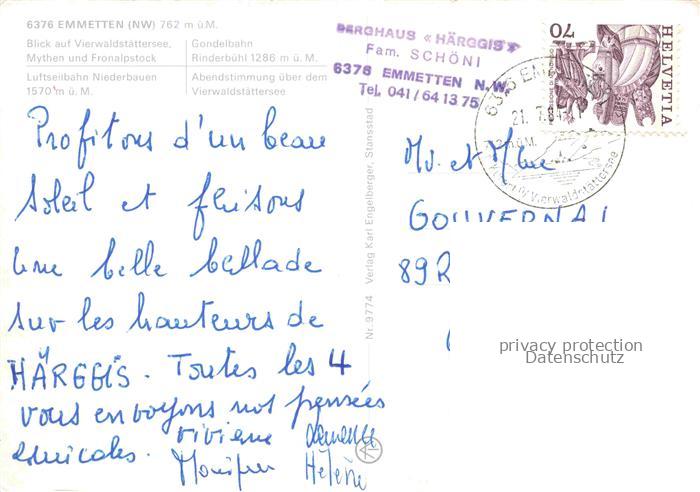 6376 EMMETTEN (NW) 762 m ü.M.
Blick auf Vierwaldstättersee,
Mythen und Fronalpstock
Gondelbahn
Rinderbühl 1286 m ü. M.
Luftseilbahn Niederbauen
1570 m ü. M.
Abendstimmung über dem
Vierwaldstättersee
BERGHAUS «HÄRGGIS»
Fam. SCHÖNI
6376 EMMETTEN N.W.
Tel. 041/64 13 75
70
HELVETIA
6376 EM
21. 7. 8
Vierwaldstättersee
Nr. 9774 Verlag Karl Engelberger, Stansstad
Profitons d'un beau
Soleil et faisons
une belle ballade
sur les hauteurs de
HÄRGGIS. Toutes les 4
vous envoyons nos pensées
amicales. Viviane
Monique Hélène
et Mme
GOUVERNA
89
privacy protection
Datenschutz